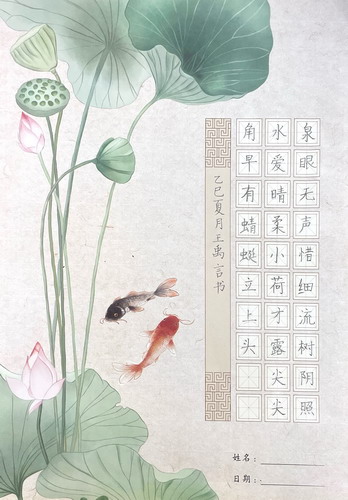 泉眼无声惜细流树阴照
水爱晴柔小荷才露尖尖
角早有蜻蜓立上头
乙巳夏月王禹言书
姓名：
日期：